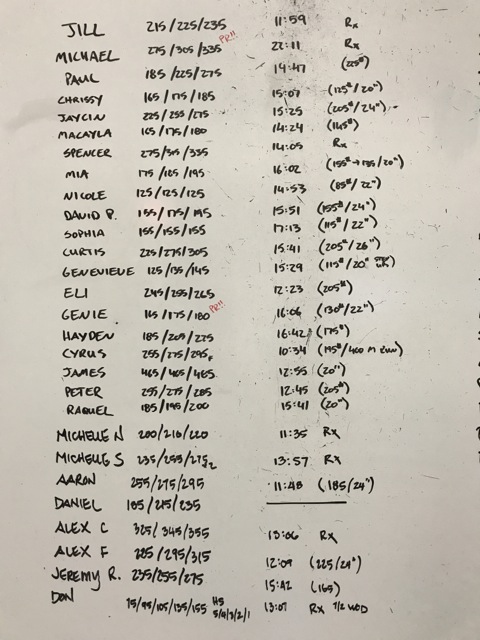 JILL 215/225/235 11:59 Rx
MICHAEL 275/305/335 PR!! 22:11 Rx
PAUL 185/225/275 14:47 (225#)
CHRISSY 165/175/185 15:07 (125#/20")
JAYCIN 225/255/275 15:25 (205#/24")
MACAYLA 165/175/180 14:24 (145#)
SPENCER 275/315/335 14:05 Rx
MIA 175/185/195 16:02 (155#→135/20")
NICOLE 125/125/125 14:53 (85#/22")
DAVID P. 155/175/195 15:51 (155#/24")
SOPHIA 155/155/155 17:13 (115#/22")
CURTIS 225/275/305 15:41 (205#/26")
GENEVIEVE 125/135/145 15:29 (115#/20"
ELI 245/255/265 12:23 (205#)
GENIE 165/175/180 PR!! 16:06 (130#/22")
HAYDEN 185/205/225 16:42 (175#)
CYRUS 255/275/295F 10:34 (195#/400 M RUN)
JAMES 465/465/465 12:55 (20")
PETER 255/275/285 12:45 (205#)
RAQUEL 185/195/200 15:41 (20")
MICHELLE N 200/210/220 11:35 Rx
MICHELLE S 235/255/275 x2 13:57 Rx
AARON 255/275/295 11:48 (185/24")
DANIEL 185/215/235
ALEX C 325/345/355 13:06 Rx
ALEX F 285/295/315 12:09 (225/24")
JEREMY R. 235/255/275 15:42 (165)
DON 75/95/105/135/155 HS 5/4/3/2/1 13:07 Rx 1/2 WOD